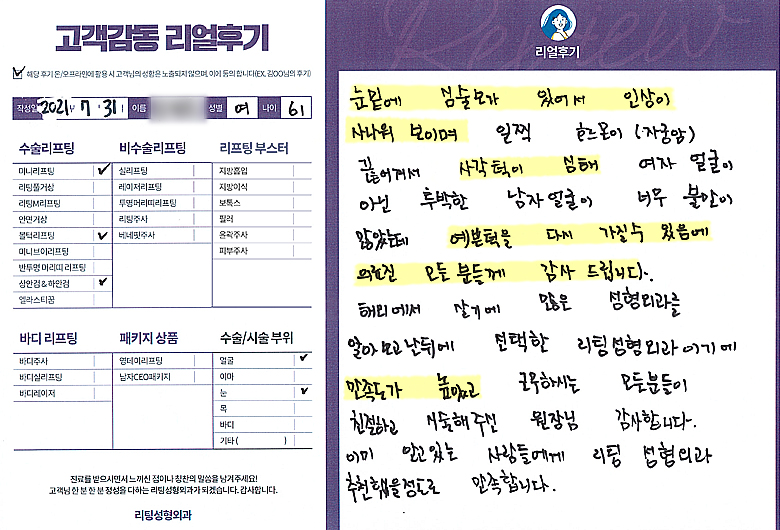 고객감동 리얼후기
해당 후기 온/오프라인에 활용 시 고객님의 성함은 노출되지 않으며, 이에 동의 합니다(EX, 김OO님의 후기)
작성일 2021년 7 31 이름 성별 여 나이 61
수술리프팅
미니리프팅 ✓
리팅풀거상
리팅M리프팅
안면거상
볼턱리프팅 ✓
미니브이리프팅
반투명 머리띠 리프팅
상안검 & 하안검 ✓
엘라스티꿈
비수술리프팅
실리프팅
레이저리프팅
투명머리띠리프팅
리팅주사
베네핏주사
리프팅 부스터
지방흡입
지방이식
보톡스
필러
윤곽주사
피부주사
바디 리프팅
바디주사
바디실리프팅
바디레이저
패키지 상품
영데이리프팅
남자CEO패키지
수술/시술 부위
얼굴 ✓
이마
눈 ✓
목
바디
기타 ( )
진료를 받으시면서 느끼신 점이나 칭찬의 말씀을 남겨주세요!
고객님 한 분 한 분 정성을 다하는 리팅성형외과가 되겠습니다. 감사합니다.
리팅성형외과
Review
리얼후기
눈밑에 심술보가 있어서 인상이
사나워 보이며 일찍 호르몬이 (자궁암)
끊어져서 사각턱이 심해 여자 얼굴이
아닌 투박한 남자얼굴이 너무 불만이
많았는데 예쁜턱을 다시 가질수 있음에
의료진 모든 분들께 감사 드립니다.
해외에서 살기에 많은 성형외과를
알아보고 난뒤에 선택한 리팅성형외과 이기에
만족도가 높았고 근무하시는 모든분들이
친절하고 시술해주신 원장님 감사합니다.
이미 알고있는 사람들에게 리팅 성형외과
추천했을정도로 만족합니다.